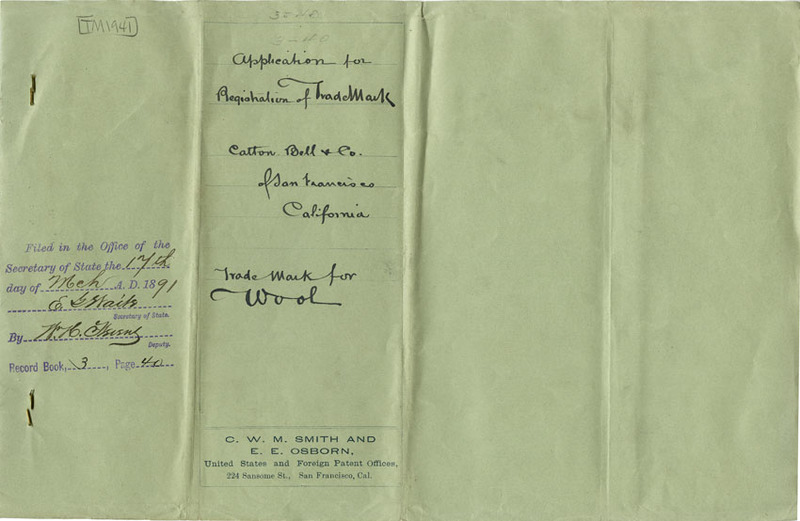 TM1941
3-40
Application for
Registration of Trade Mark
Catton Bell & Co.
of San Francisco
California
Trade Mark for
Wool
Filed in the Office of the
Secretary of State the 17th
day of Mch A. D. 1891
E G Waite
Secretary of State.
By W. H.
Deputy.
Record Book, 3, Page 40
C. W. M. SMITH AND
E. E. OSBORN,
United States and Foreign Patent Offices,
224 Sansome St., San Francisco, Cal.